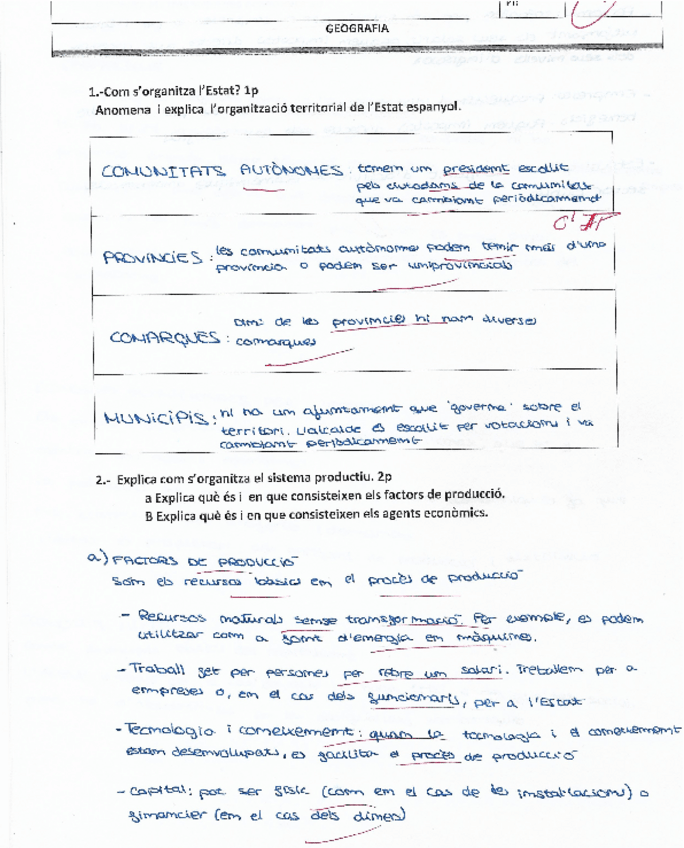 GEOGRAFIA
1.-Com s'organitza l'Estat? 1p
Anomena i explica l'organització territorial de l'Estat espanyol.
COMUNITATS AUTÒNOMES: tenem un president escollit
pels ciutadans de la comunitat
que va canviant periòdicament
PROVÍNCIES: les comunitats autònomes poden tenir més d'una
província o poden ser uniprovincials
COMARQUES: dins de les províncies hi han diverses
comarques
MUNICIPIS: hi ha un ajuntament que 'governa' sobre el
territori. L'alcalde és escollit per votacions i va
canviant periòdicament
2.- Explica com s'organitza el sistema productiu. 2p
a Explica què és i en que consisteixen els factors de producció.
B Explica què és i en que consisteixen els agents econòmics.
a) FACTORS DE PRODUCCIÓ
Són els recursos bàsics en el procés de producció
- Recursos naturals sense transformació. Per exemple, es poden
utilitzar com a font d'energia en màquines.
- Traball fet per persones per rebre un salari. Treballem per a
empreses o, en el cas dels funcionaris, per a l'Estat
- Tecnologia i coneixement: quan la tecnologia i el coneixement
estan desenvolupats, es facilita el procés de producció
- Capital: pot ser físic (com en el cas de les instal·lacions) o
financier (en el cas dels diners)